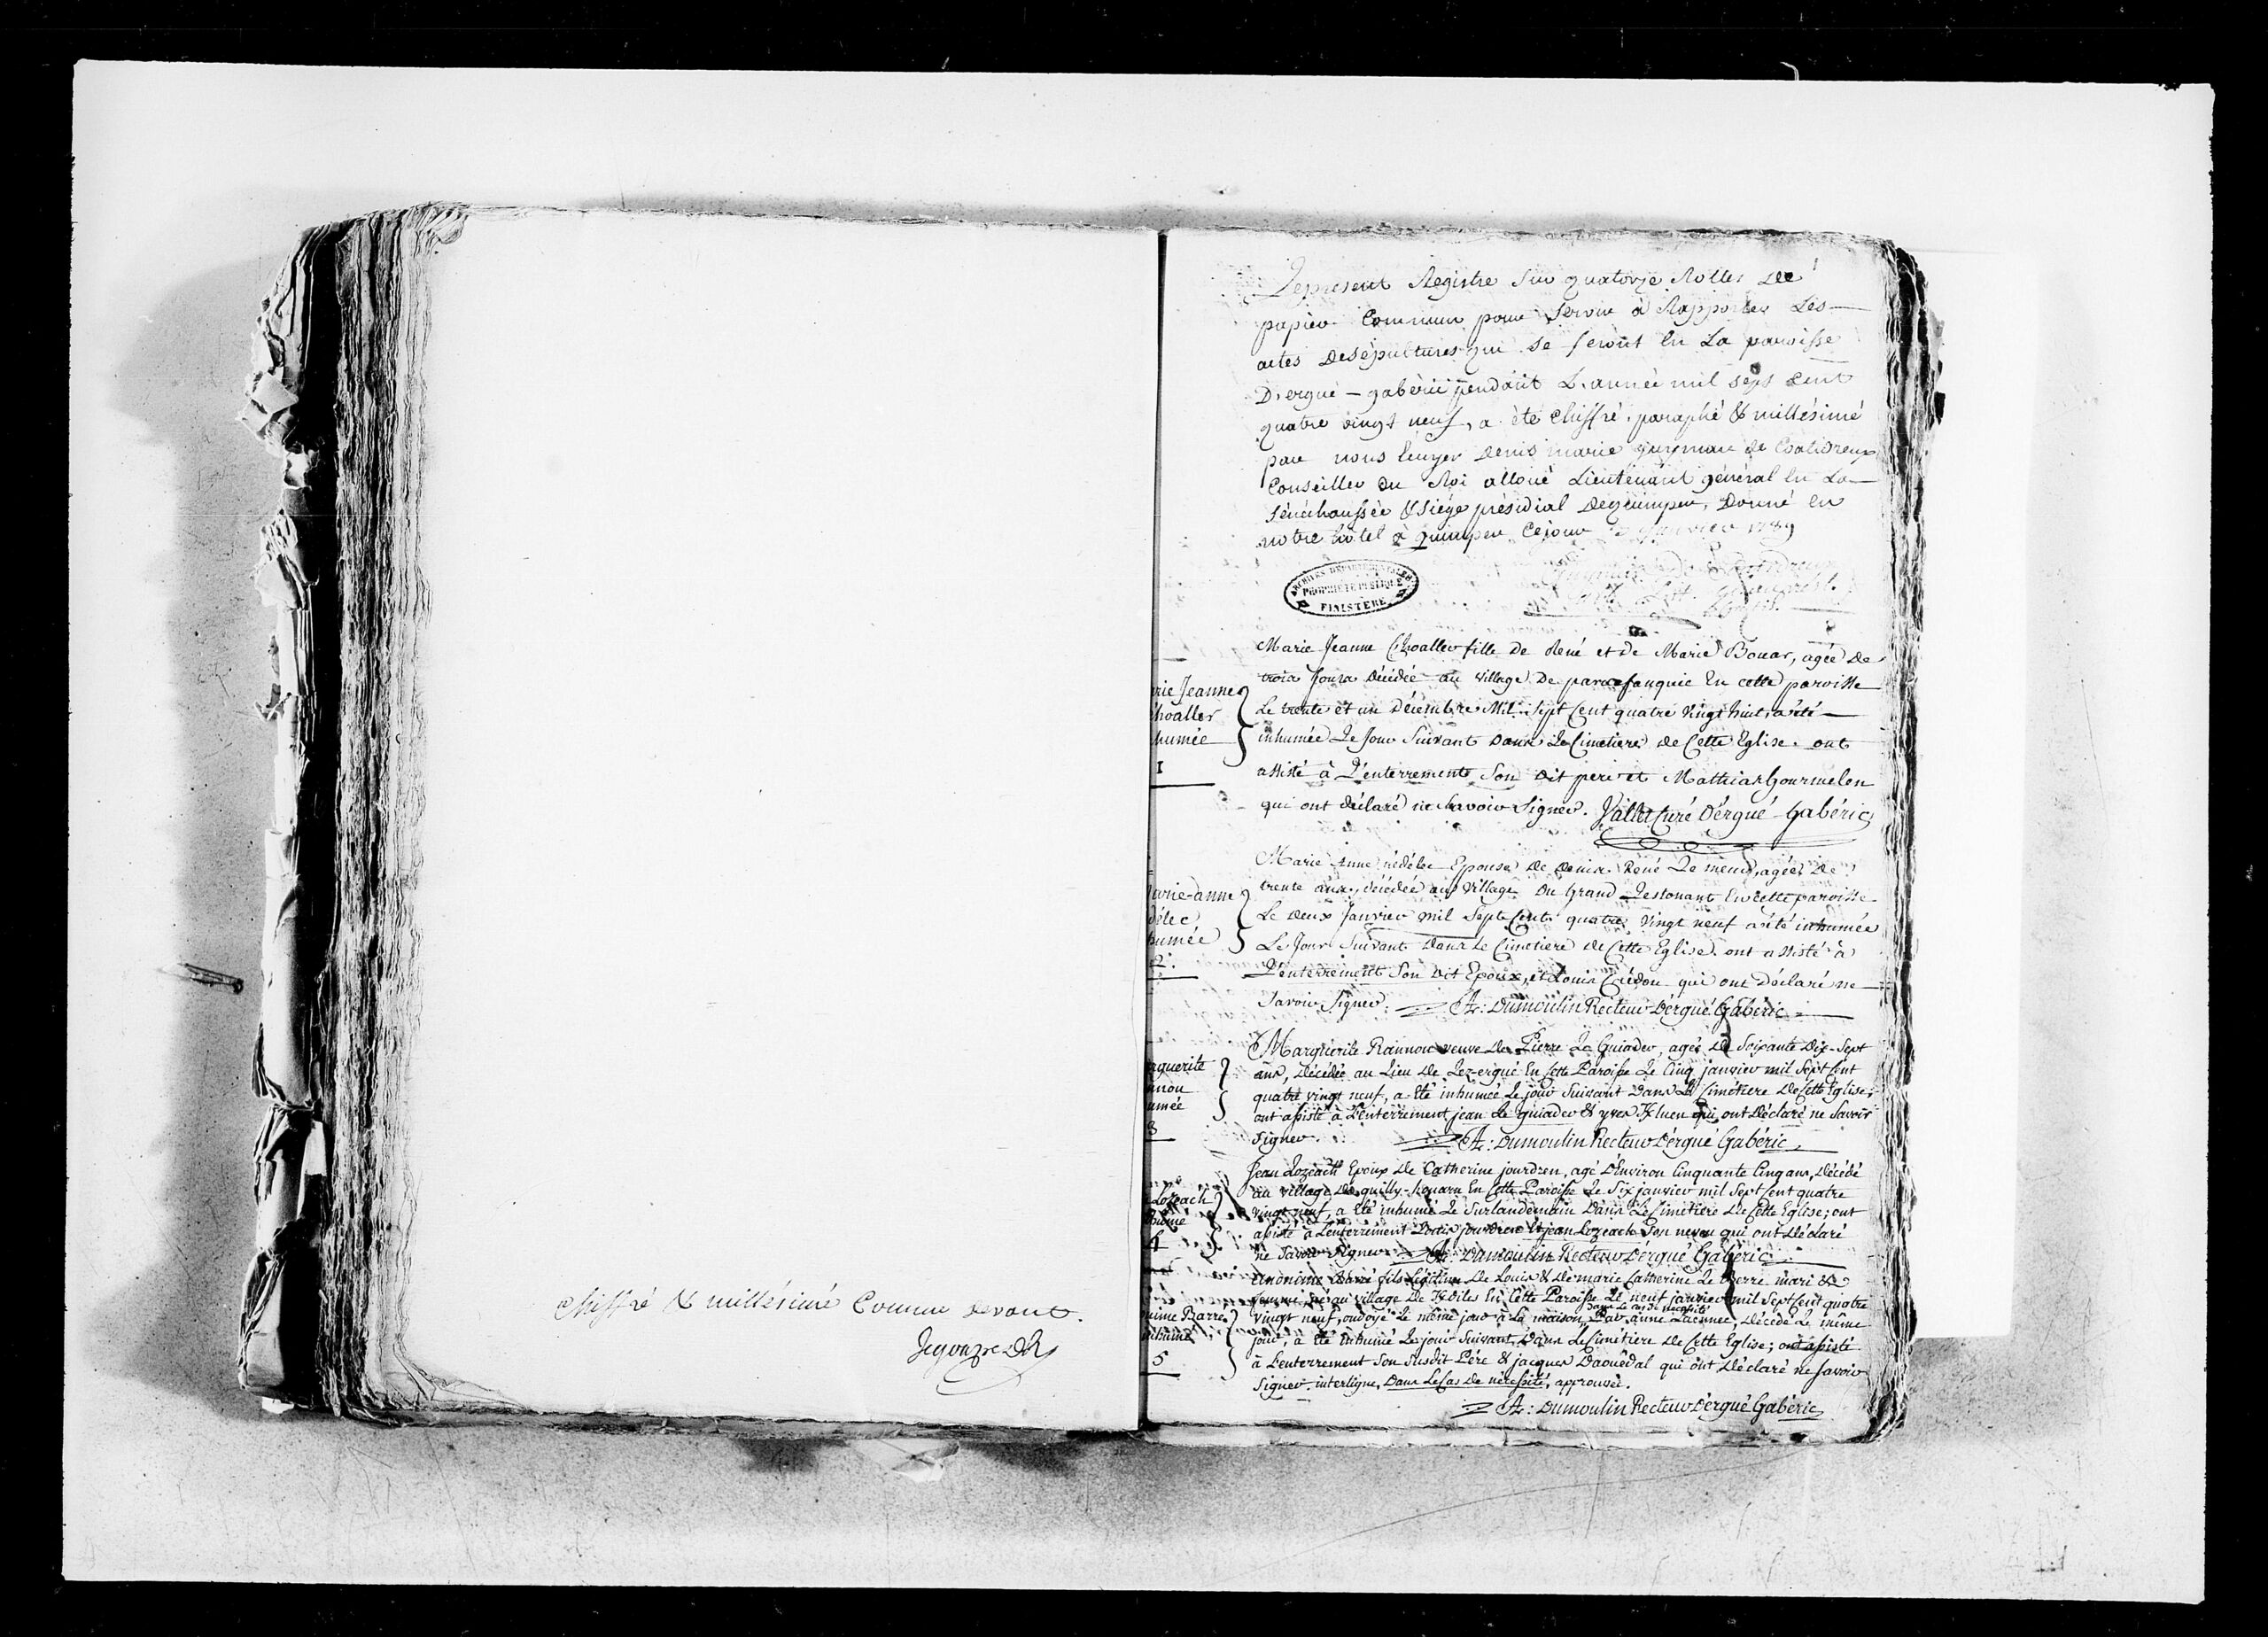 chiffré & millésimé comme devant.
Le present Registre sur quatorze Rolles de
papier commun pour servir à Rapporter Les
actes desépultures qui se feront en La paroisse
D'ergué-gabéric pendant L'année mil sept cent
quatre vingt neuf, a été chiffré, paraphé & millésimé
par nous Ecuyer denis marie
Conseiller du Roi alloué Lieutenant général en La
sénéchaussée & siége présidial dequimper, Donné en
notre hotel à quimper Cejour janvier 1789
ARCHIVES DÉPARTEMENTALES
PROPRIÉTÉ PUBLIQUE
FINISTÈRE
rie Jeanne
hoaller
humée
1
Marie Jeanne Choaller fille de René et de Marie Bouar, agée de
trois jours décédée au village de parcafanquic En cette paroisse
Le trente et un Décembre Mil Sept Cent quatre vingt huit, a été
inhumée Le jour Suivant Dans Le Cimetiere de Cette Eglise. ont
assisté à L'enterrement Son dit pere et Mathias Gourmelen
qui ont déclaré ne Savoir Signer. Vallet Curé D'ergué-Gabéric
arie-anne
délec
humée
2.
Marie Anne nédélec Epouse de Denis René Le meur, agée de
trente ans, décédée au village Du Grand Lestonant En cette paroisse
Le deux Janvier mil Sept Cent quatre vingt neuf a été inhumée
Le Jour Suivant Dans Le Cimetiere de Cette Eglise. ont assisté à
L'enterrement Son dit Epoux, et Louis Crédou qui ont déclaré ne
Savoir Signer. A: Dumoulin Recteur D'ergué Gabéric
rguerite
nnou
umée
3
Marguerite Rannou veuve de Pierre Le Guiader, agée de Soixante Dix-Sept
ans, Décédée au Lieu de Lez-ergué En Cette Paroisse Le Cinq janvier mil Sept Cent
quatre vingt neuf, a été inhumée Le jour Suivant Dans Le Cimetiere de Cette Eglise;
ont assisté à L'enterrement jean Le guiader & yves Kluen qui ont Déclaré ne Savoir
Signer. A: Dumoulin Recteur D'ergué Gabéric
Lozeach
humé
4
Jean Lozeach Epoux de Catherine jourdren, agé D'Environ Cinquante Cinq ans, Décédé
au village de quilly-houarn En Cette Paroisse Le Six janvier mil Sept Cent quatre
vingt neuf, a été inhumé Le Surlandemain Dans Le Cimetiere de Cette Eglise; ont
assisté à L'enterrement Louis jourdren & jean Lozeach Son neveu qui ont Déclaré
ne Savoir Signer. A: Dumoulin Recteur D'ergué Gabéric
nime Barré
inhumé
5
Anonime Barré fils Légitime de Louis & de marie Catherine Le Berre mari &
femme, né au village de Kdiles En Cette Paroisse Le neuf janvier mil Sept Cent quatre
dans Le cas de nécessité
vingt neuf, ondoyé Le même jour à La maison, Par anne Laënnec, Décédé Le même
jour, a été inhumé Le jour Suivant, Dans Le Cimetiere de Cette Eglise; ont assisté
à L'enterrement Son Susdit Pére & jacques Daouëdal qui ont Déclaré ne Savoir
Signer. interligne, Dans Le Cas de nécessité, approuvée.
A: Dumoulin Recteur D'ergué Gabéric